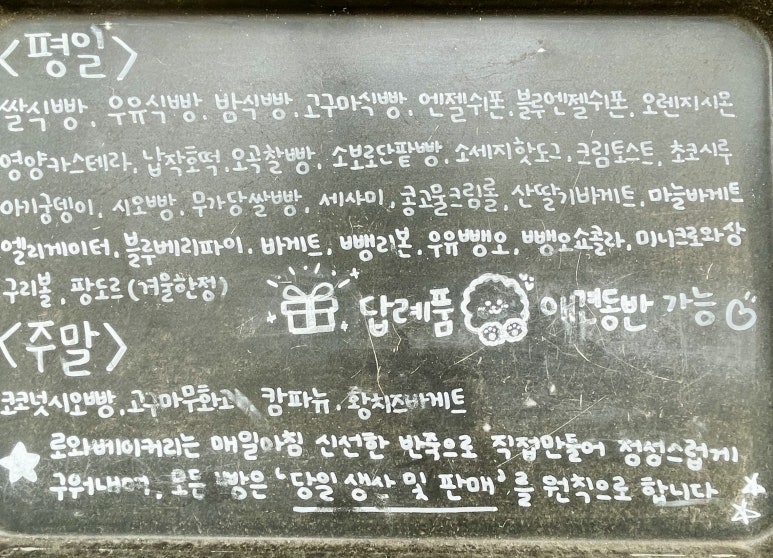 <평일>
쌀식빵, 우유식빵, 밤식빵, 고구마식빵, 엔젤쉬폰, 블루엔젤쉬폰, 오렌지시몬
영양카스테라, 납작호떡, 오곡찰빵, 소보로단팥빵, 소세지핫도그, 크림토스트, 초코시루
아기궁뎅이, 시오빵, 무가당쌀빵, 세사미, 콩고물크림롤, 산딸기바게트, 마늘바게트
엘리게이터, 블루베리파이, 바게트, 뺑리본, 우유뺑오, 뺑오쇼콜라, 미니크로와상
구리볼, 팡도르(겨울한정)
답례품 애견동반 가능
<주말>
코코넛시오빵, 고구마무화과, 캄파뉴, 황치즈바게트
로와베이커리는 매일아침 신선한 반죽으로 직접만들어 정성스럽게
구워내며, 모든 빵은 '당일 생산 및 판매'를 원칙으로 합니다